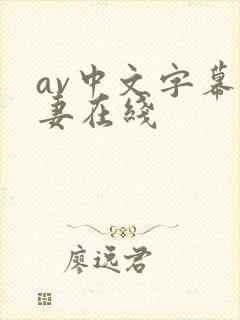 av中文字幕
妻在线
廖逸君